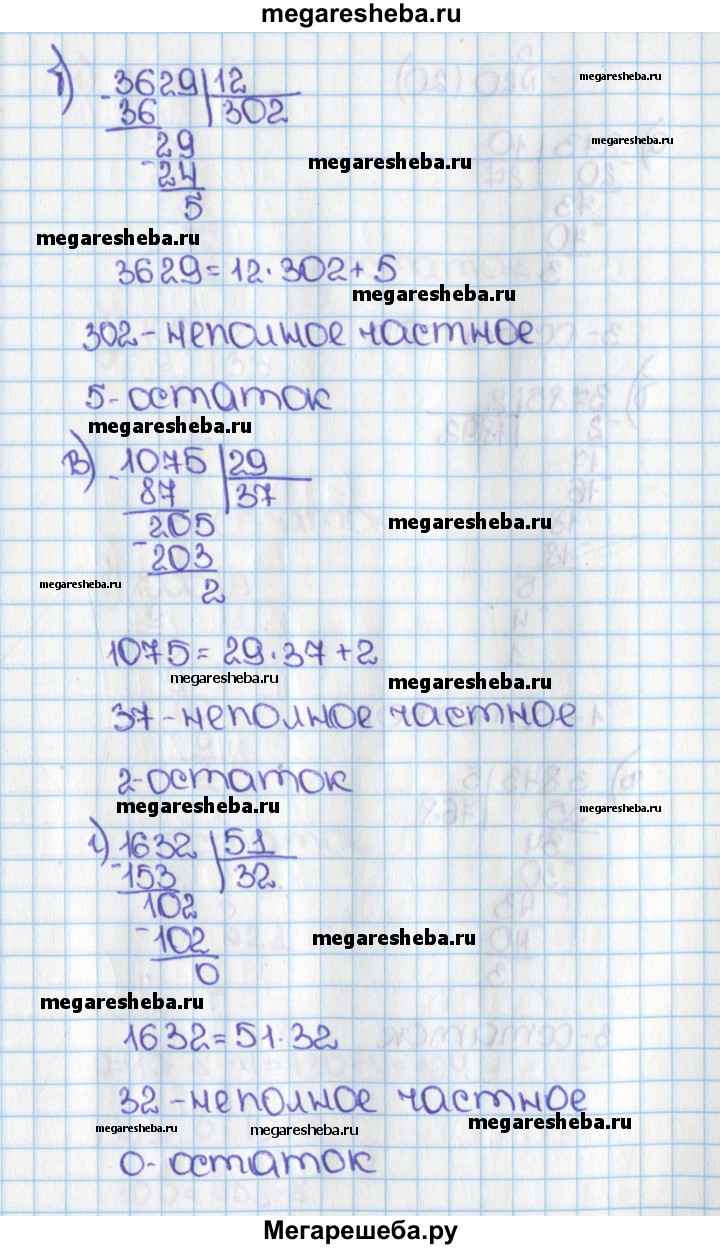 megaresheba.ru
б) 3629 | 12
megaresheba.ru
- 36 | 302
29
megaresheba.ru
megaresheba.ru
- 24
5
megaresheba.ru
3629 = 12 · 302 + 5
megaresheba.ru
302 - неполное частное
5 - остаток
megaresheba.ru
в) 1075 | 29
- 87 | 37
205
megaresheba.ru
- 203
megaresheba.ru
2
1075 = 29 · 37 + 2
megaresheba.ru
megaresheba.ru
37 - неполное частное
2 - остаток
megaresheba.ru
megaresheba.ru
г) 1632 | 51
- 153 | 32
102
- 102
megaresheba.ru
0
megaresheba.ru
1632 = 51 · 32
32 - неполное частное
megaresheba.ru
megaresheba.ru
megaresheba.ru
0 - остаток
Мегарешеба.ру